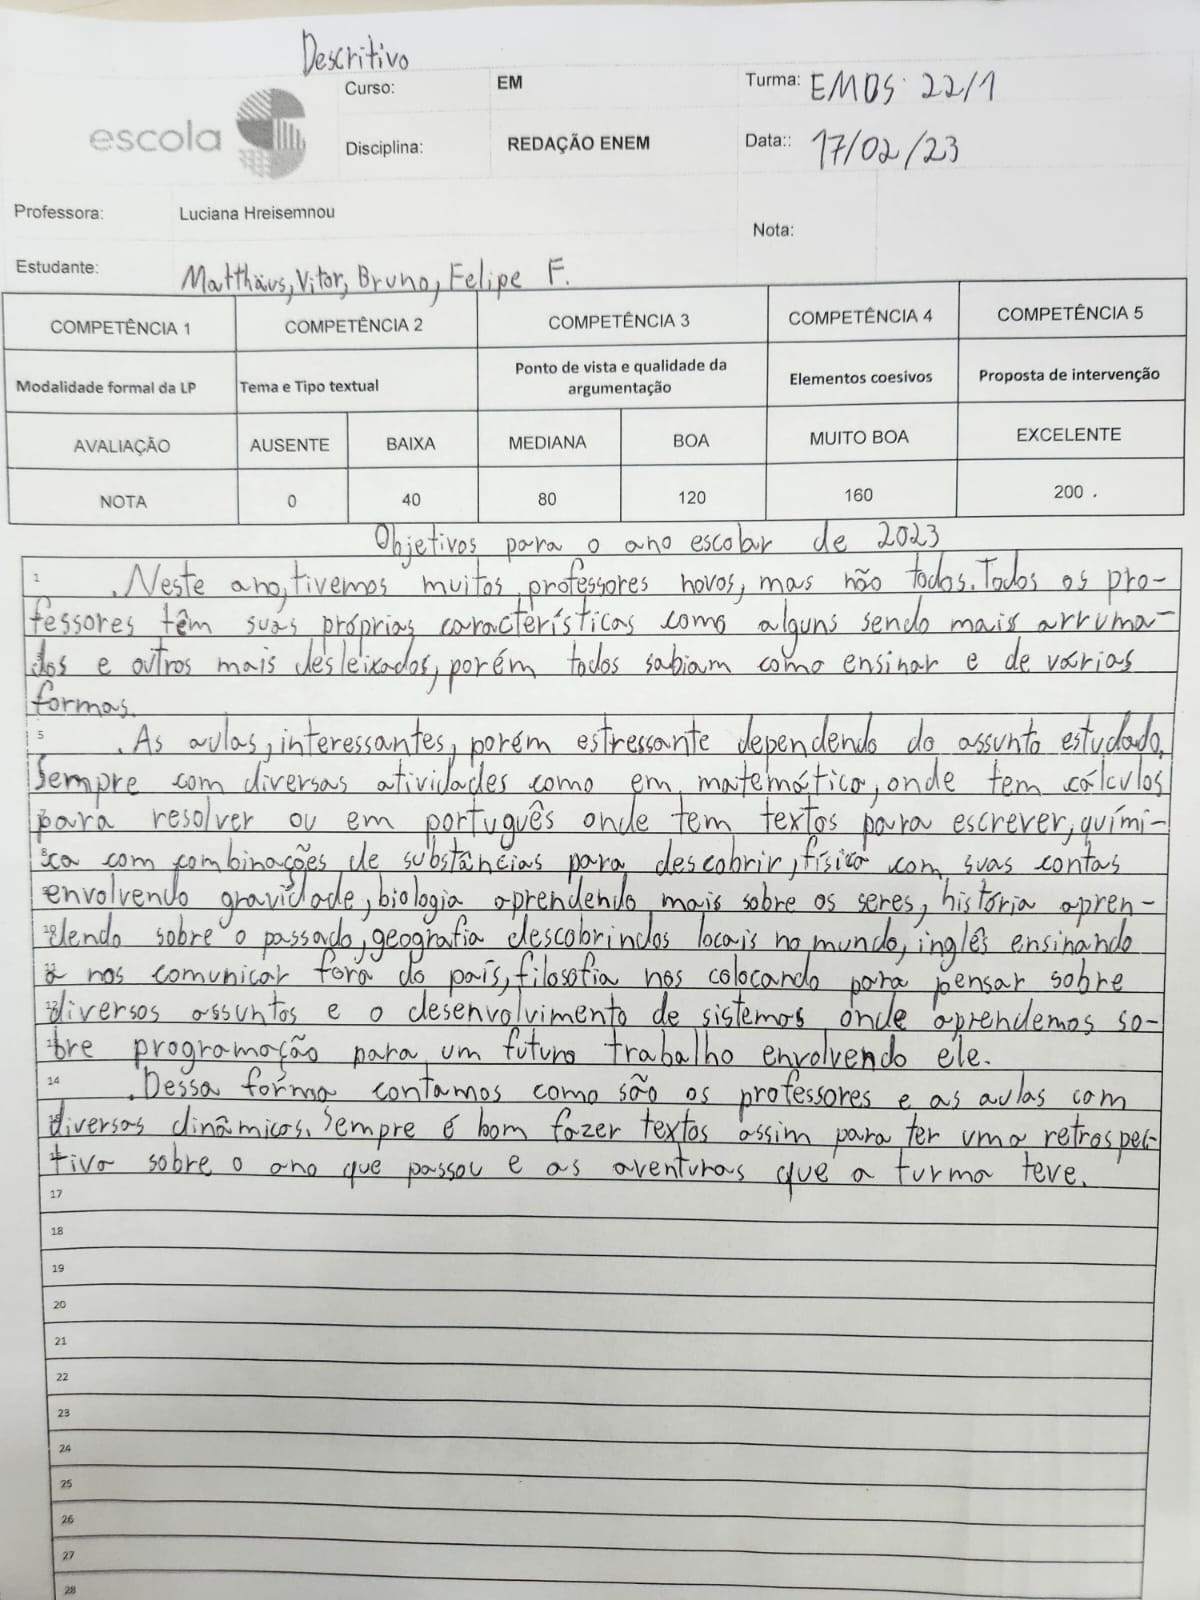 Descritivo
escola
Curso: EM Turma: EMDS 22/1
Disciplina: REDAÇÃO ENEM Data:: 17/02/23
Professora: Luciana Hreisemnou
Nota:
Estudante: Matthäus, Vitor, Bruno, Felipe F.
COMPETÊNCIA 1 COMPETÊNCIA 2 COMPETÊNCIA 3 COMPETÊNCIA 4 COMPETÊNCIA 5
Modalidade formal da LP Tema e Tipo textual Ponto de vista e qualidade da argumentação Elementos coesivos Proposta de intervenção
AVALIAÇÃO AUSENTE BAIXA MEDIANA BOA MUITO BOA EXCELENTE
NOTA 0 40 80 120 160 200 .
Objetivos para o ano escolar de 2023
1 .Neste ano, tivemos muitos professores novos, mas não todos. Todos os pro-
fessores têm suas próprias características como alguns sendo mais arruma-
dos e outros mais desleixados, porém todos sabiam como ensinar e de várias
formas.
5 .As aulas, interessantes, porém estressante dependendo do assunto estudado.
Sempre com diversas atividades como em matemática, onde tem cálculos
para resolver ou em português onde tem textos para escrever, quími-
ca com combinações de substâncias para descobrir, física com suas contas
envolvendo gravidade, biologia aprendendo mais sobre os seres, história apren-
10 dendo sobre o passado, geografia descobrindos locais no mundo, inglês ensinando
11 a nos comunicar fora do país, filosofia nos colocando para pensar sobre
12 diversos assuntos e o desenvolvimento de sistemas onde aprendemos so-
13 bre programação para um futuro trabalho envolvendo ele.
14 .Dessa forma contamos como são os professores e as aulas com
15 diversas dinâmicas. Sempre é bom fazer textos assim para ter uma retrospec-
16 tiva sobre o ano que passou e as aventuras que a turma teve.
17
18
19
20
21
22
23
24
25
26
27
28